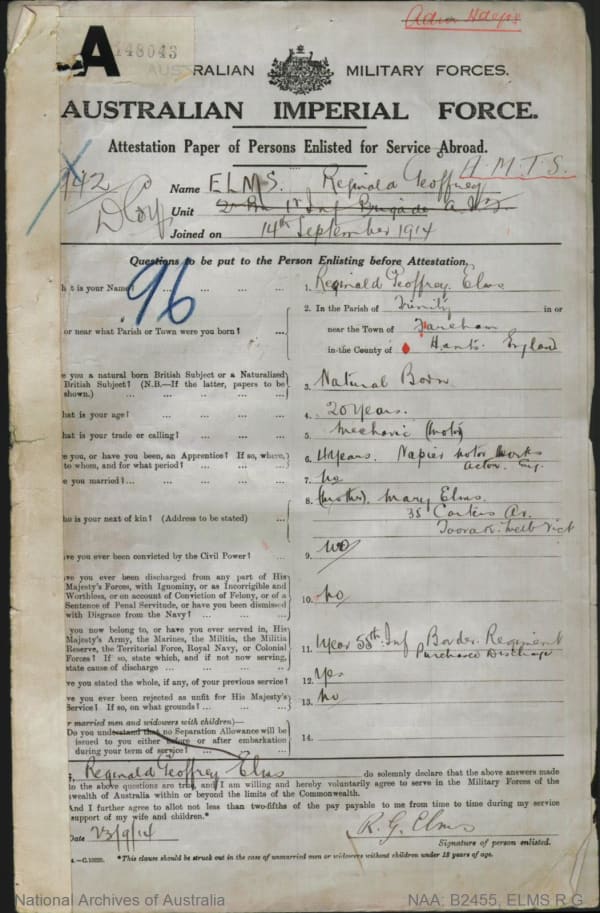 A
148043
AUSTRALIAN MILITARY FORCES.
AUSTRALIAN IMPERIAL FORCE.
Attestation Paper of Persons Enlisted for Service Abroad.
H.M.T.S.
942
D Coy
Name ELMS. Reginald Geoffrey
Unit 1st Inf Brigade
Joined on 14th September 1914
Questions to be put to the Person Enlisting before Attestation.
96
hat is your Name? ... ... 1. Reginald Geoffrey Elms
2. In the Parish of Trinity in or
or near what Parish or Town were you born? ... near the Town of Fareham
in the County of Hants England
e you a natural born British Subject or a Naturalized
British Subject? (N.B.—If the latter, papers to be
shown.) 3. Natural Born
hat is your age? 4. 20 years.
hat is your trade or calling? 5. Mechanic (Motor)
e you, or have you been, an Apprentice? If so, where,
to whom, and for what period? 6. 4 years. Napier Motor Works
Acton. Eng.
re you married? 7. No
8. (Mother). Mary Elms.
ho is your next of kin? (Address to be stated) 35 Av.
Toorak. Melb Vict
ve you ever been convicted by the Civil Power? 9. No
ve you ever been discharged from any part of His
Majesty's Forces, with Ignominy, or as Incorrigible and
Worthless, or on account of Conviction of Felony, or of a
Sentence of Penal Servitude, or have you been dismissed
with Disgrace from the Navy? 10. No
you now belong to, or have you ever served in, His
Majesty's Army, the Marines, the Militia, the Militia
Reserve, the Territorial Force, Royal Navy, or Colonial
Forces? If so, state which, and if not now serving,
state cause of discharge 11. 1 year 55th Inf Border Regiment
Purchased Discharge
ve you stated the whole, if any, of your previous service? 12. Yes
ve you ever been rejected as unfit for His Majesty's
Service? If so, on what grounds? 13. No
r married men and widowers with children)—
Do you understand that no Separation Allowance will be
issued to you either before or after embarkation
during your term of service? 14.
I, Reginald Geoffrey Elms do solemnly declare that the above answers made
to the above questions are true, and I am willing and hereby voluntarily agree to serve in the Military Forces of the
wealth of Australia within or beyond the limits of the Commonwealth.
And I further agree to allot not less than two-fifths of the pay payable to me from time to time during my service
support of my wife and children.*
Date 23/9/14
R. G. Elms
Signature of person enlisted.
*This clause should be struck out in the case of unmarried men or widowers without children under 18 years of age.
National Archives of Australia
NAA: B2455, ELMS R G